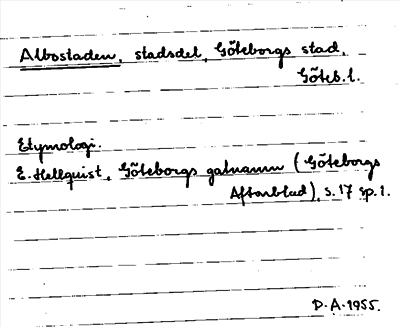 Albostaden, stadsdel, Göteborgs stad,
Göteb. l.
Etymologi.
E. Hellquist, Göteborgs gatnamn (Göteborgs
Aftonblad), s. 17 sp. 1.
D. A. 1955.